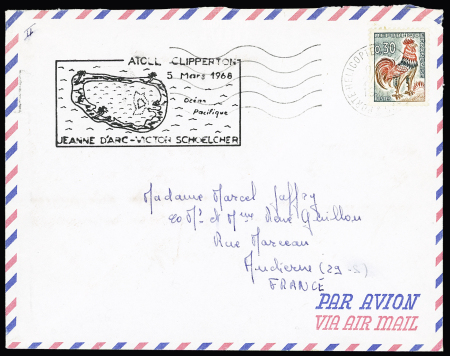 ATOLL CLIPPERTON
5 Mars 1968
Océan
Pacifique
JEANNE D'ARC-VICTOR SCHOELCHER
0,30
Madame Marcel Jaffry
Mr et Mme René Quillou
Rue Marceau
Audierne (29-S)
FRANCE
PAR AVION
VIA AIR MAIL